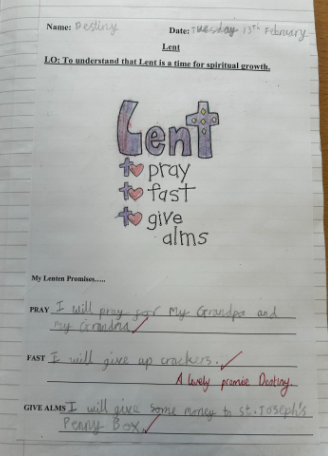 Name: Destiny Date: Tuesday 13th February
Lent
LO: To understand that Lent is a time for spiritual growth.
Lent
to pray
to fast
to give
alms
My Lenten Promises.....
PRAY I will pray for My Grandpa and
my Grandma
FAST I will give up crackers.
A lovely promise Destiny.
GIVE ALMS I will give some money to St. Joseph's
Penny Box.